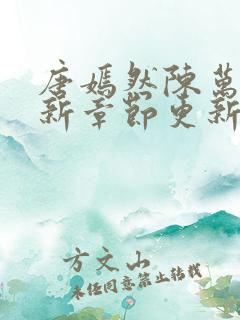 唐嫣然陳萬
新章節更新
方文山
未经同意禁止转载